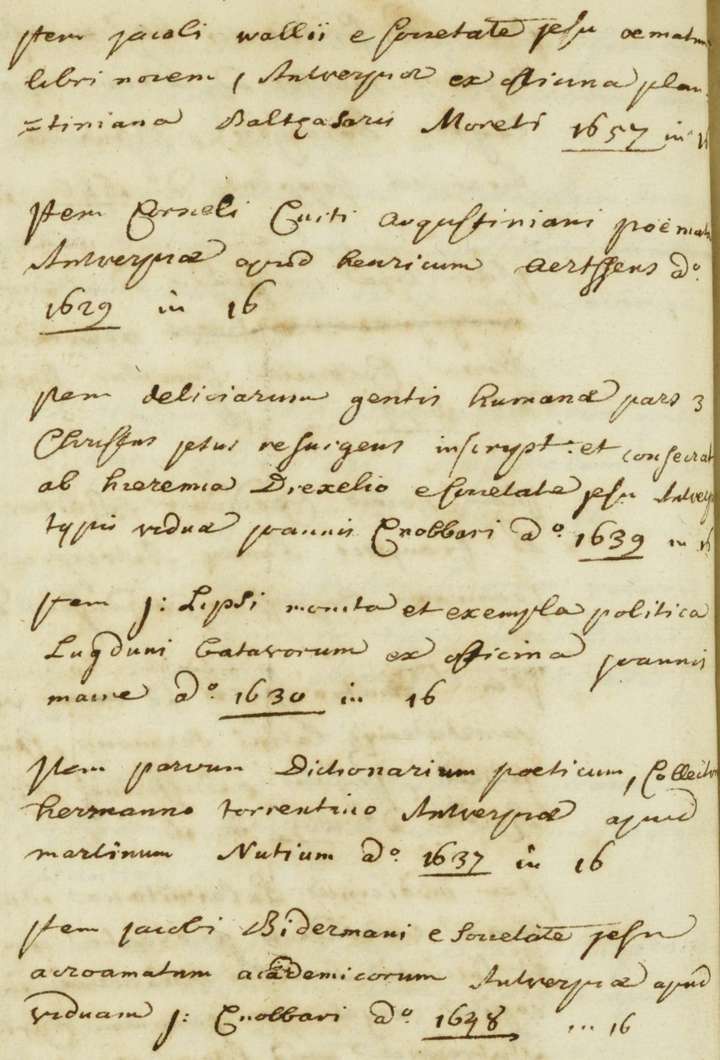 Item jacobi wallii e Societate jesu oematum
libri novem, Antverpiæ ex officina plan
=tiniana Baltzasaris Moreti 1657 in 16
Item Corneli Curti augustiniani poëmata
Antverpiæ apud henricum aertssens aº.
1629 in 16
Item deliciarum gentis humanæ pars 3
Christus jesus resurgens inscrypt. et consecrat
ab hieremia Drexelio e Societate jesu Antverp
typis viduæ joannis Cnobbari aº. 1639 in 16
Item J: Lipsi monita et exempla politica
Lugduni batavorum ex officina joannis
maire aº. 1630 in 16
Item parvum Dictionarium poeticum, Collecto
hermanno torrentino Antverpiæ apud
martinum Nutium aº. 1637 in 16
Item jacobi Bidermani e Societate jesu
acroamatum academicorum Antverpiæ apud
viduam j: Cnobbari aº. 1648 in 16